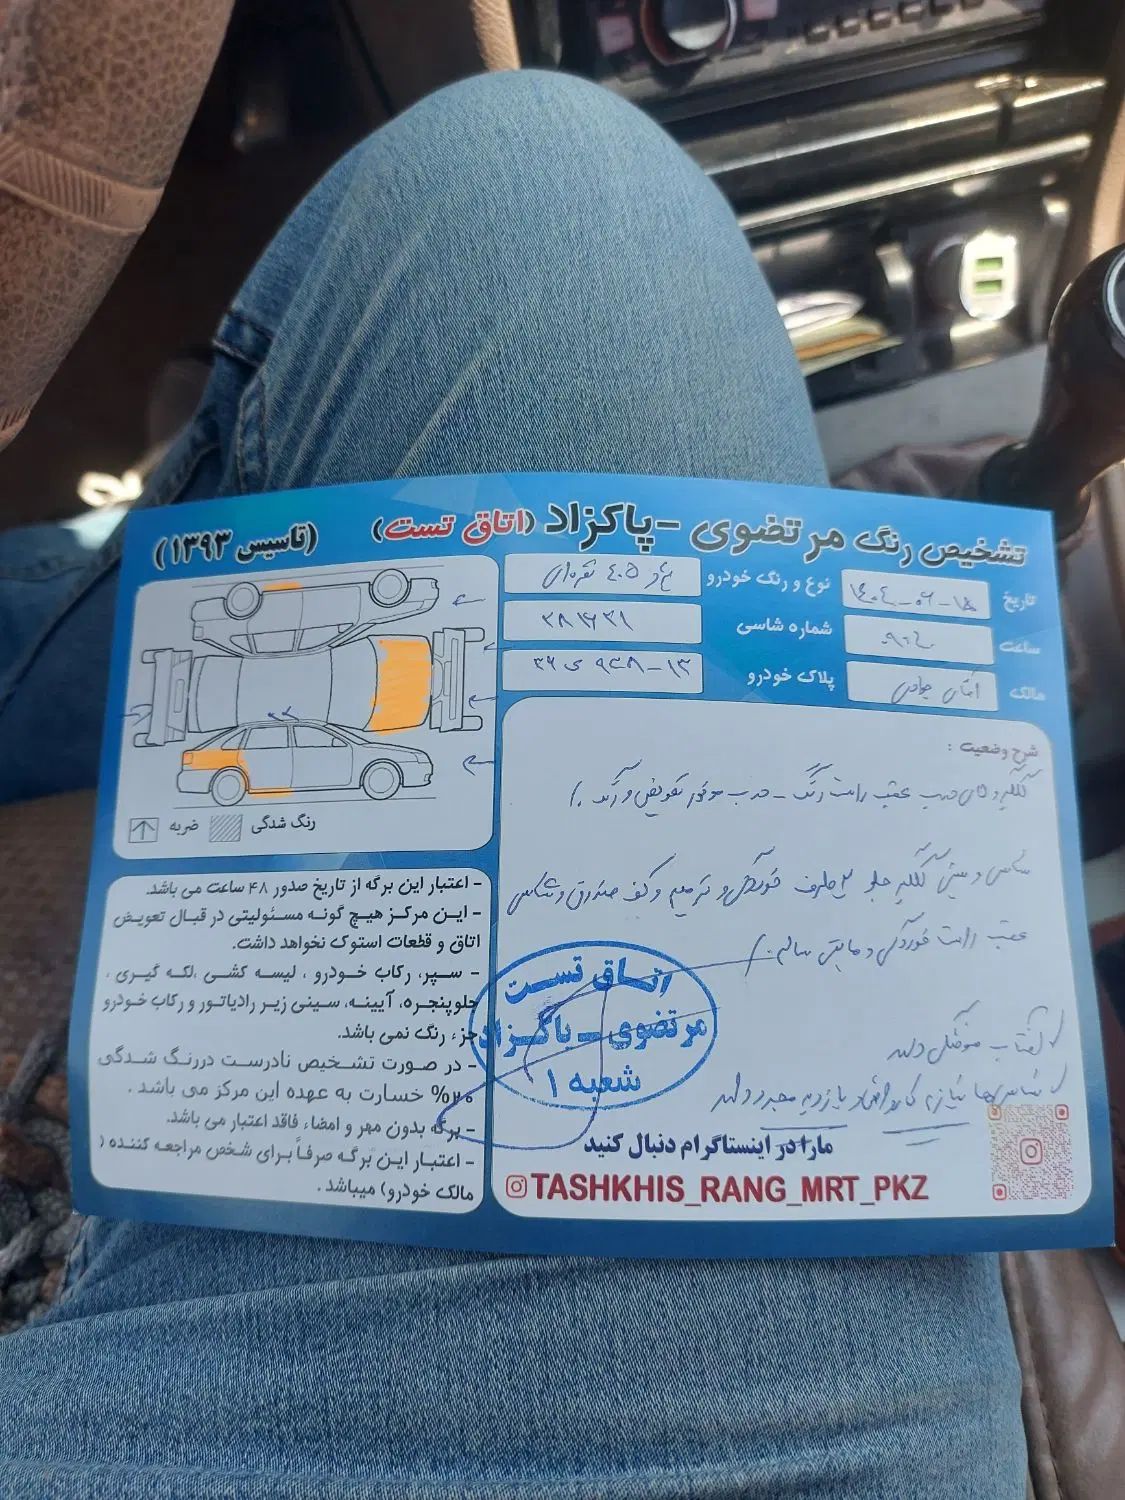 تشخیص رنگ مرتضوی - پاکزاد (اتاق تست) (تاسیس ۱۳۹۳)
تاریخ
نوع و رنگ خودرو پژو ۴۰۵ نقره‌ای
ساعت
شماره شاسی
مالک آقای
پلاک خودرو
شرح وضعیت :
عقب راست رنگ - درب موتور تعویض و رنگ
شاسی و سینی گلگیر جلو ۲ طرف خوردگی و ترمیم و کف صندوق و شاسی
عقب راست خوردگی و مابقی سالم
آفتاب سوختگی دارد
شاسی‌ها نیاز به بازدید مجدد دارد
رنگ شدگی
ضربه
- اعتبار این برگه از تاریخ صدور ۴۸ ساعت می باشد.
- این مرکز هیچ گونه مسئولیتی در قبال تعویض
اتاق و قطعات استوک نخواهد داشت.
- سپر، رکاب خودرو ، لیسه کشی ،لکه گیری ،
جلوپنجره، آیینه، سینی زیر رادیاتور و رکاب خودرو
جزء رنگ نمی باشد.
- در صورت تشخیص نادرست دررنگ شدگی
۲۰% خسارت به عهده این مرکز می باشد .
- برگه بدون مهر و امضاء فاقد اعتبار می باشد.
- اعتبار این برگه صرفاً برای شخص مراجعه کننده (
مالک خودرو) میباشد .
اتاق تست
مرتضوی - پاکزاد
شعبه ۱
مارا در اینستاگرام دنبال کنید
TASHKHIS_RANG_MRT_PKZ